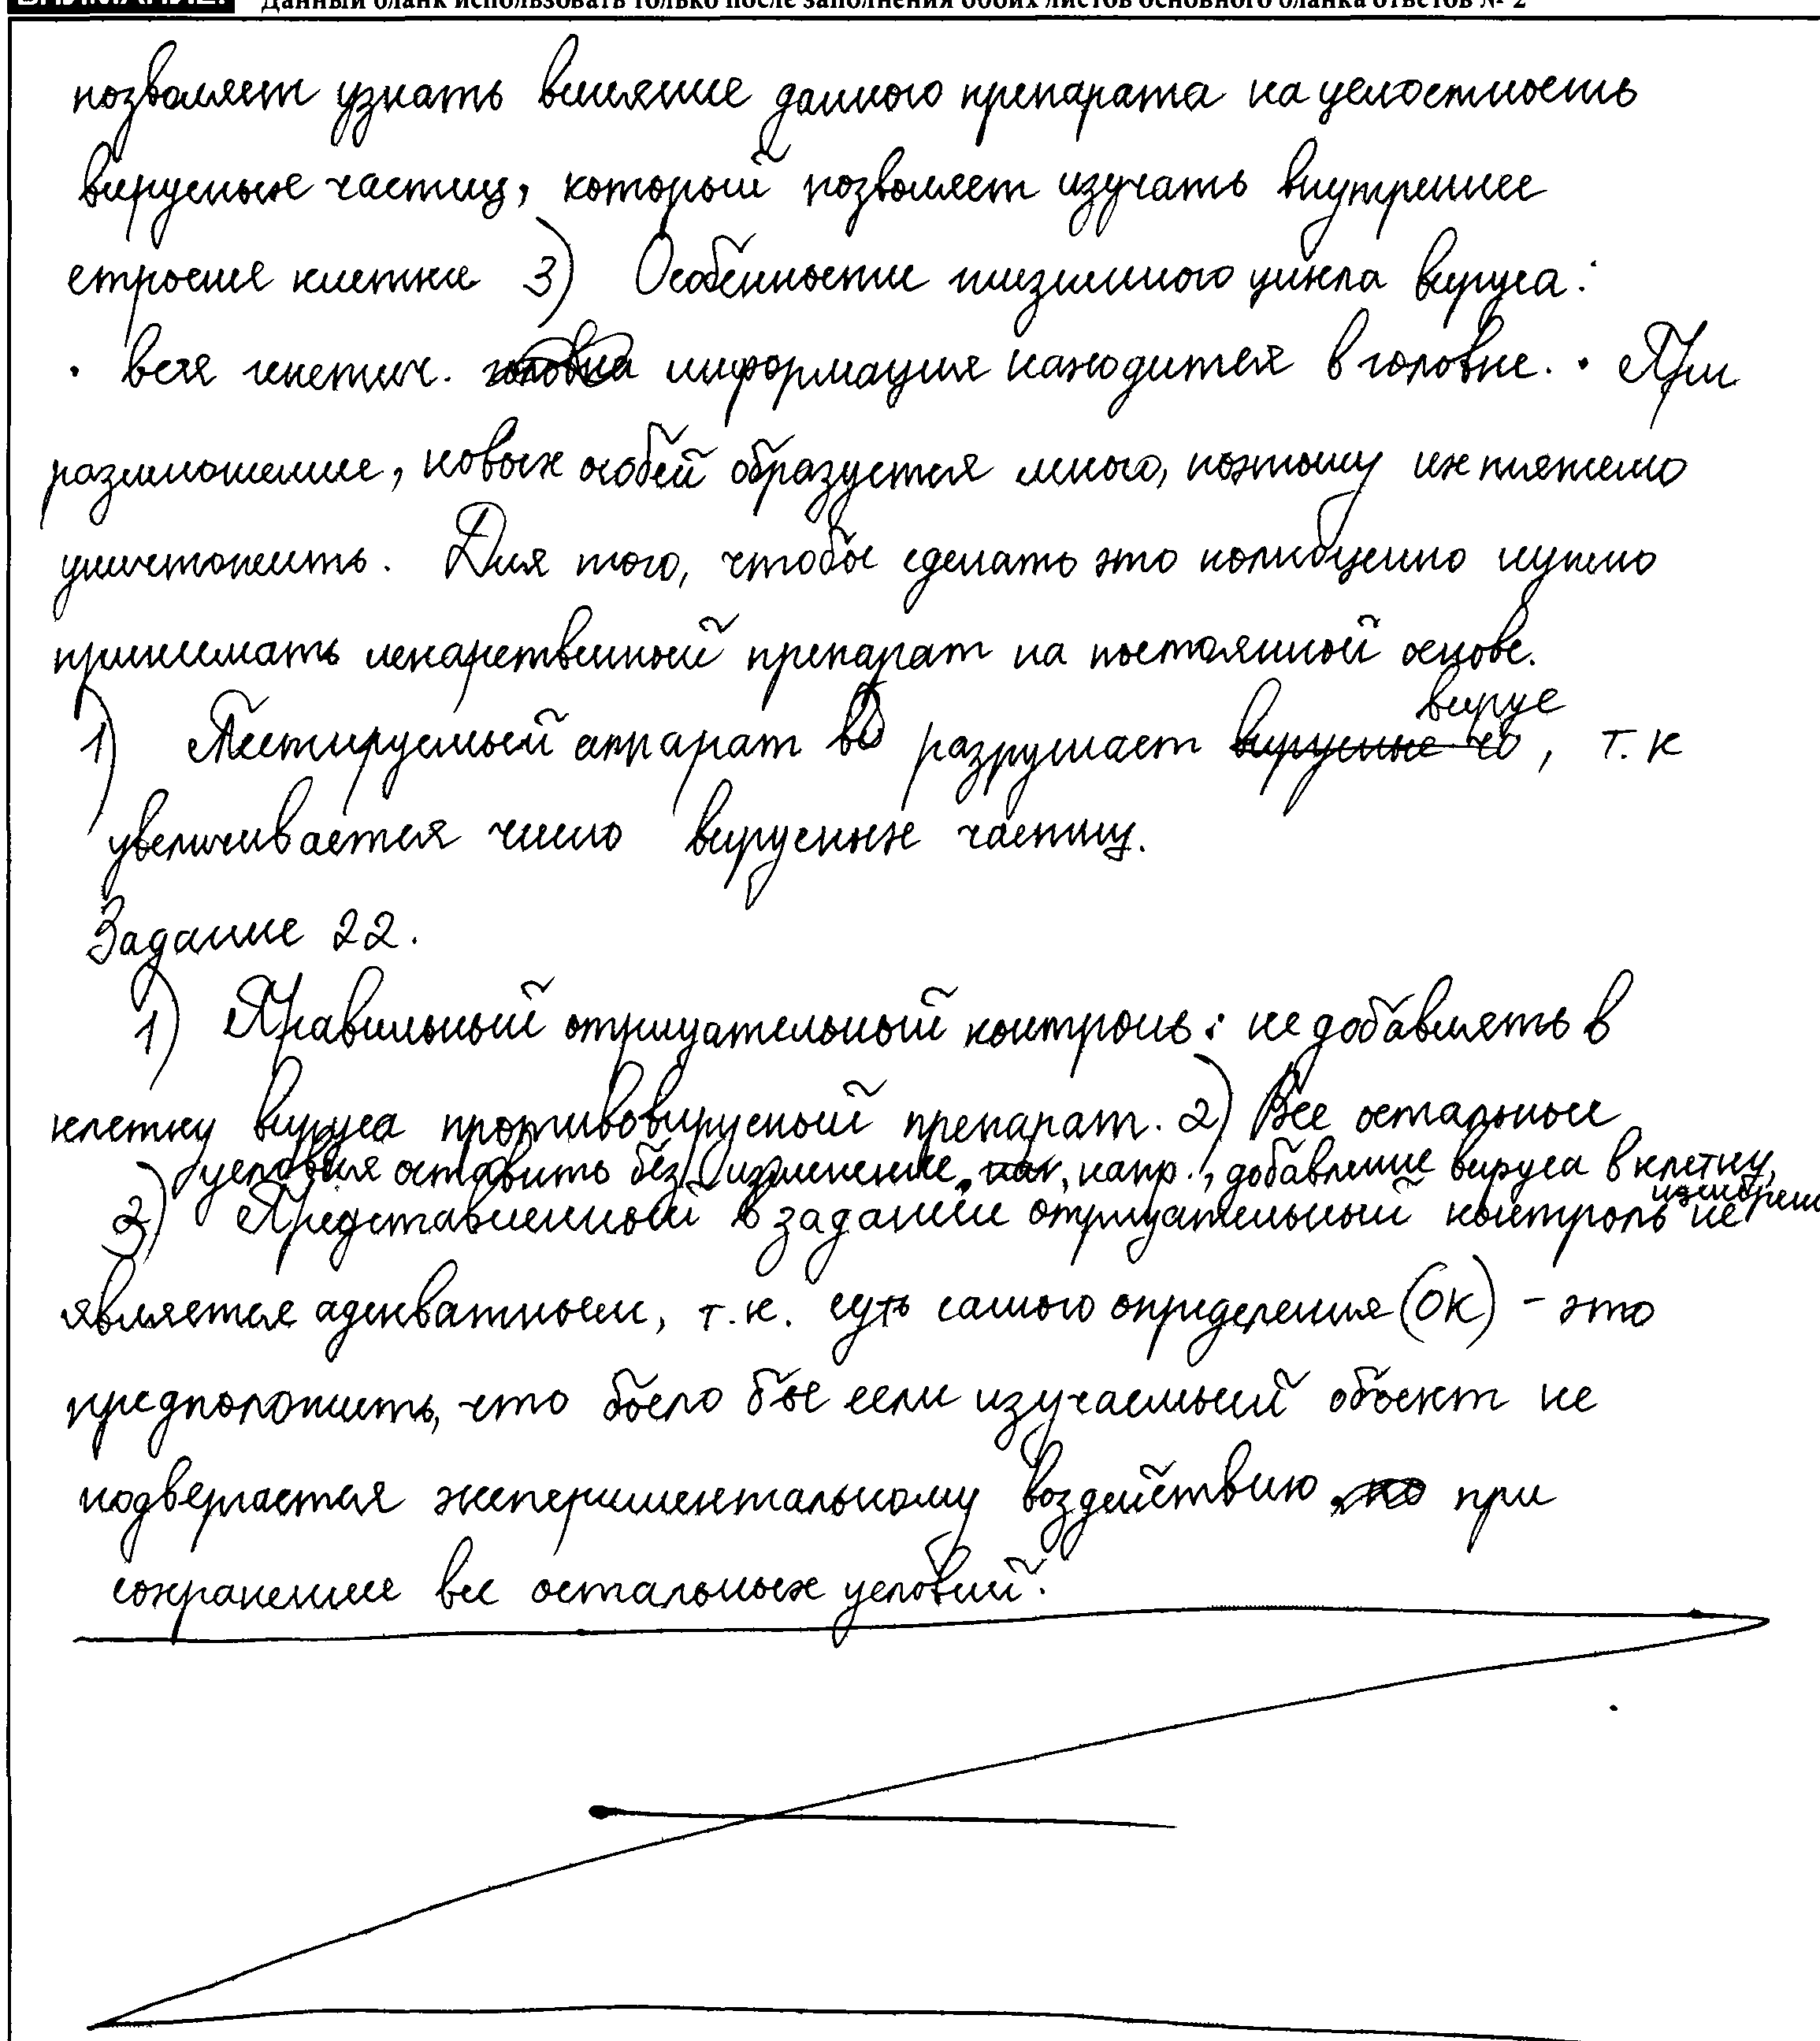 Данный бланк использовать только после заполнения обоих листов основного бланка ответов № 2
позволяет узнать влияние данного препарата на целостность
вирусных частиц, который позволяет изучать внутреннее
строения клетки 3) Особенности жизненного цикла вируса:
· вся генетич. информация находится в головке. · При
размножение, новых особей образуется много, поэтому их тяжело
уничтожить. Для того, чтобы сделать это полноценно нужно
принимать лекарственный препарат на постоянной основе.
вирус
1) Тестируемый аппарат разрушает вирусные ч, т.к
увеличивается число вирусных частиц.
Задание 22.
1) Правильный отрицательный контроль: не добавлять в
клетку вируса противовирусный препарат. 2) Все остальные
условия оставить без изменение, напр., добавление вируса в клетку,
2) Представленный в задании отрицательный контроль не
является адекватным, т.к. суть самого определения (ОК) - это
предположить, что было бы если изучаемый объект не
подвергается экспериментальному воздействию при
сохранение все остальных условий.